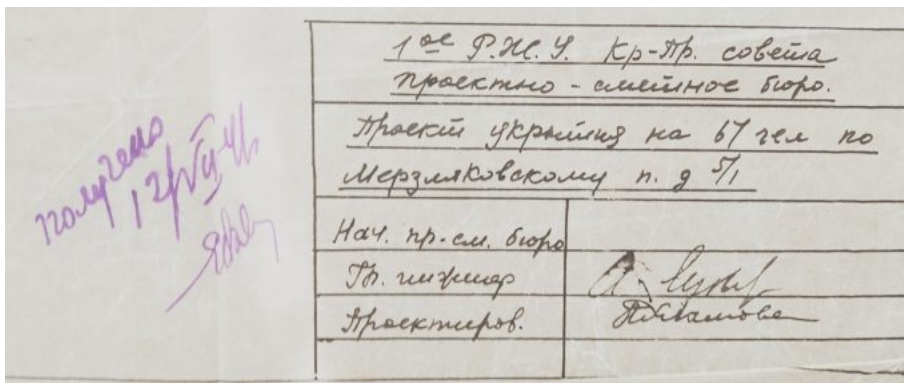 получено
12/VII-41
1ое Р.Ж.У. Кр-Пр. совета
проектно-сметное бюро.
Проект укрытия на 67 чел по
Мерзляковскому п. д 5/1
Нач. пр-см. бюро
Гл. инженер
Проектиров.